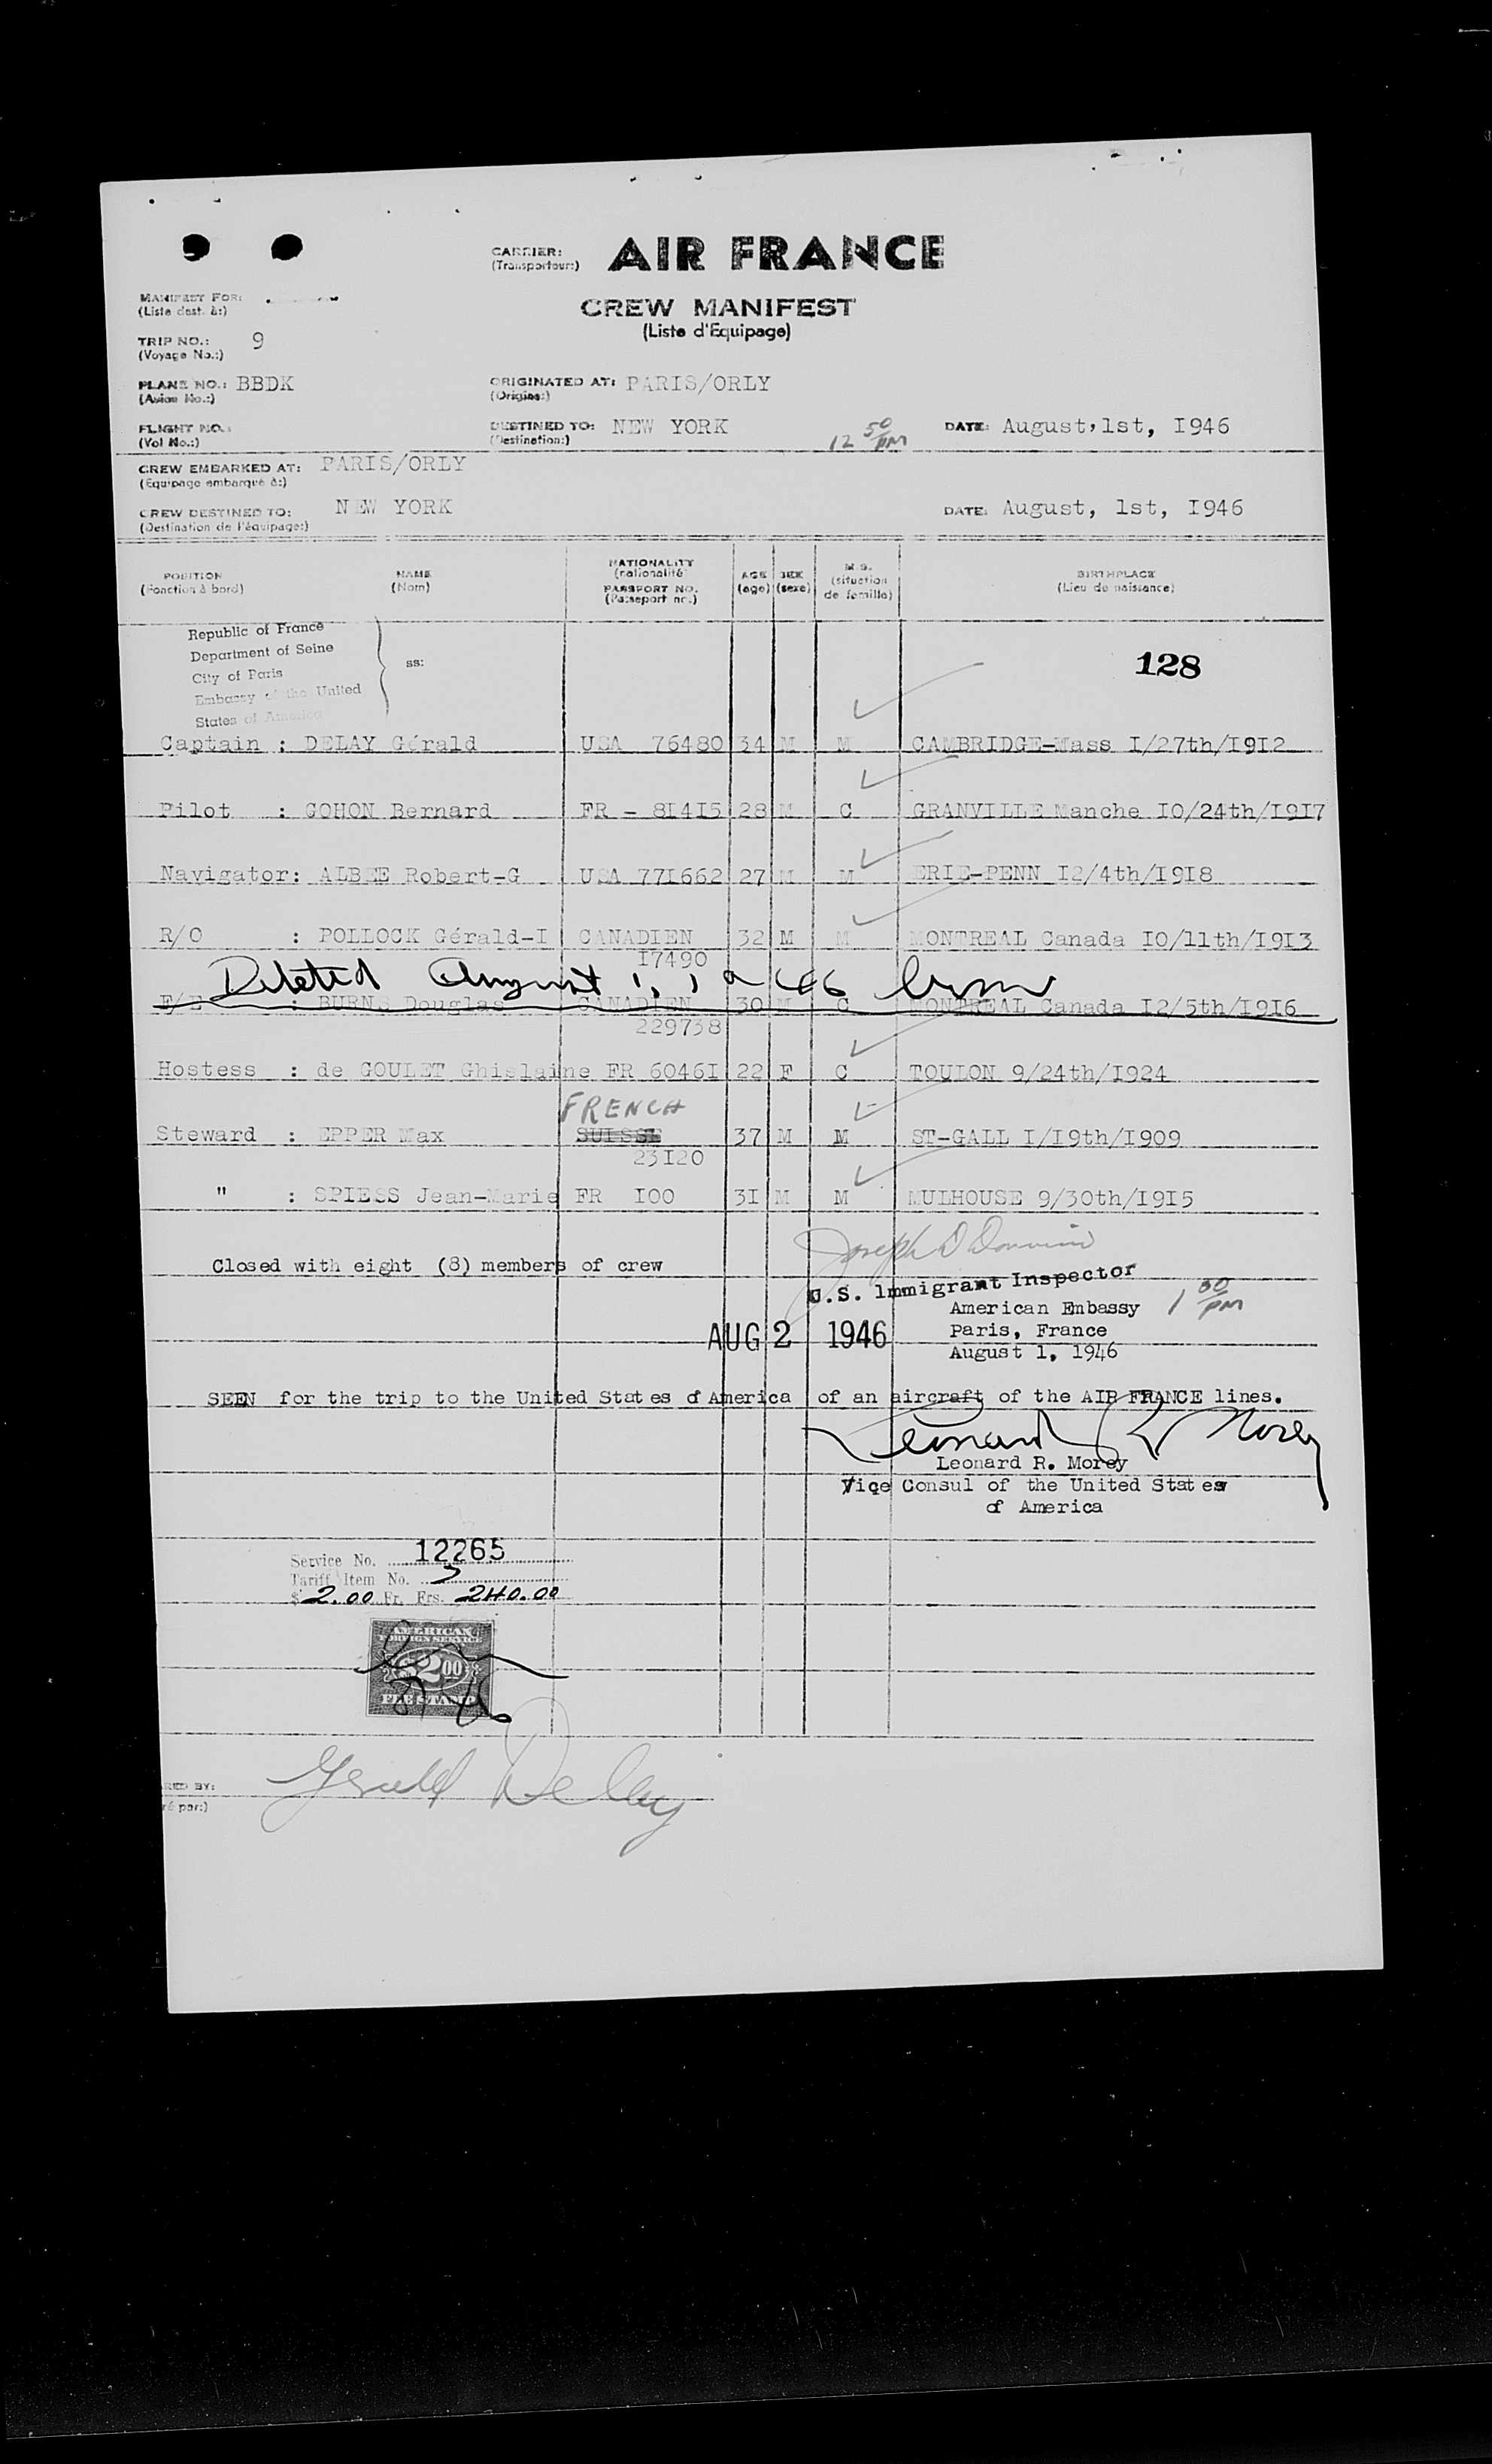 CARRIER: AIR FRANCE
(Transporteur:)
MANIFEST FOR:
(Liste dest. à:)
CREW MANIFEST
(Liste d'Equipage)
TRIP NO.: 9
(Voyage No.:)
PLANE NO.: BBDK ORIGINATED AT: PARIS/ORLY
(Avion No.:) (Origine:)
FLIGHT NO.: DESTINED TO: NEW YORK 12 50 PM DATE: August,1st, I946
(Vol No.:) (Destination:)
CREW EMBARKED AT: PARIS/ORLY
(Equipage embarqué à:)
CREW DESTINED TO: NEW YORK DATE: August, 1st, I946
(Destination de l'équipage:)
POSITION NAME NATIONALITY AGE SEX M.S. BIRTHPLACE
(Fonction à bord) (Nom) (nationalité) (age) (sexe) (situation de famille) (Lieu de naissance)
PASSPORT NO.
(Passeport no.)
Republic of France
Department of Seine
City of Paris ss: 128
Embassy of the United
States of America
Captain : DELAY Gérald USA 76480 34 M M CAMBRIDGE-Mass I/27th/I9I2
Pilot : GOHON Bernard FR - 8I4I5 28 M C GRANVILLE Manche IO/24th/I9I7
Navigator: ALBEE Robert-G USA 77I662 27 M M ERIE-PENN I2/4th/I9I8
R/O : POLLOCK Gérald-I CANADIEN 32 M M MONTREAL Canada IO/11th/I9I3
I7490
Deleted August 1, 1946 lrm
F/E : BURNS Douglas CANADIEN 30 M C MONTREAL Canada I2/5th/I9I6
229738
Hostess : de GOULET Ghislaine FR 6046I 22 F C TOULON 9/24th/I924
FRENCH
Steward : EPPER Max SUISSE 37 M M ST-GALL I/I9th/I909
23I20
" : SPIESS Jean-Marie FR I00 3I M M MULHOUSE 9/30th/I9I5
Closed with eight (8) members of crew
U.S. Immigrant Inspector
American Embassy 1 30 PM
AUG 2 1946 Paris, France
August 1, 1946
SEEN for the trip to the United States of America of an aircraft of the AIR FRANCE lines.
Leonard R Morey
Leonard R. Morey
Vice Consul of the United States
of America
Service No. 12265
Tariff Item No. 5
$ 2.00 Fr. Frs. 240.00
AMERICAN
FOREIGN SERVICE
$2.00
FEE STAMP
Gerald DeLay